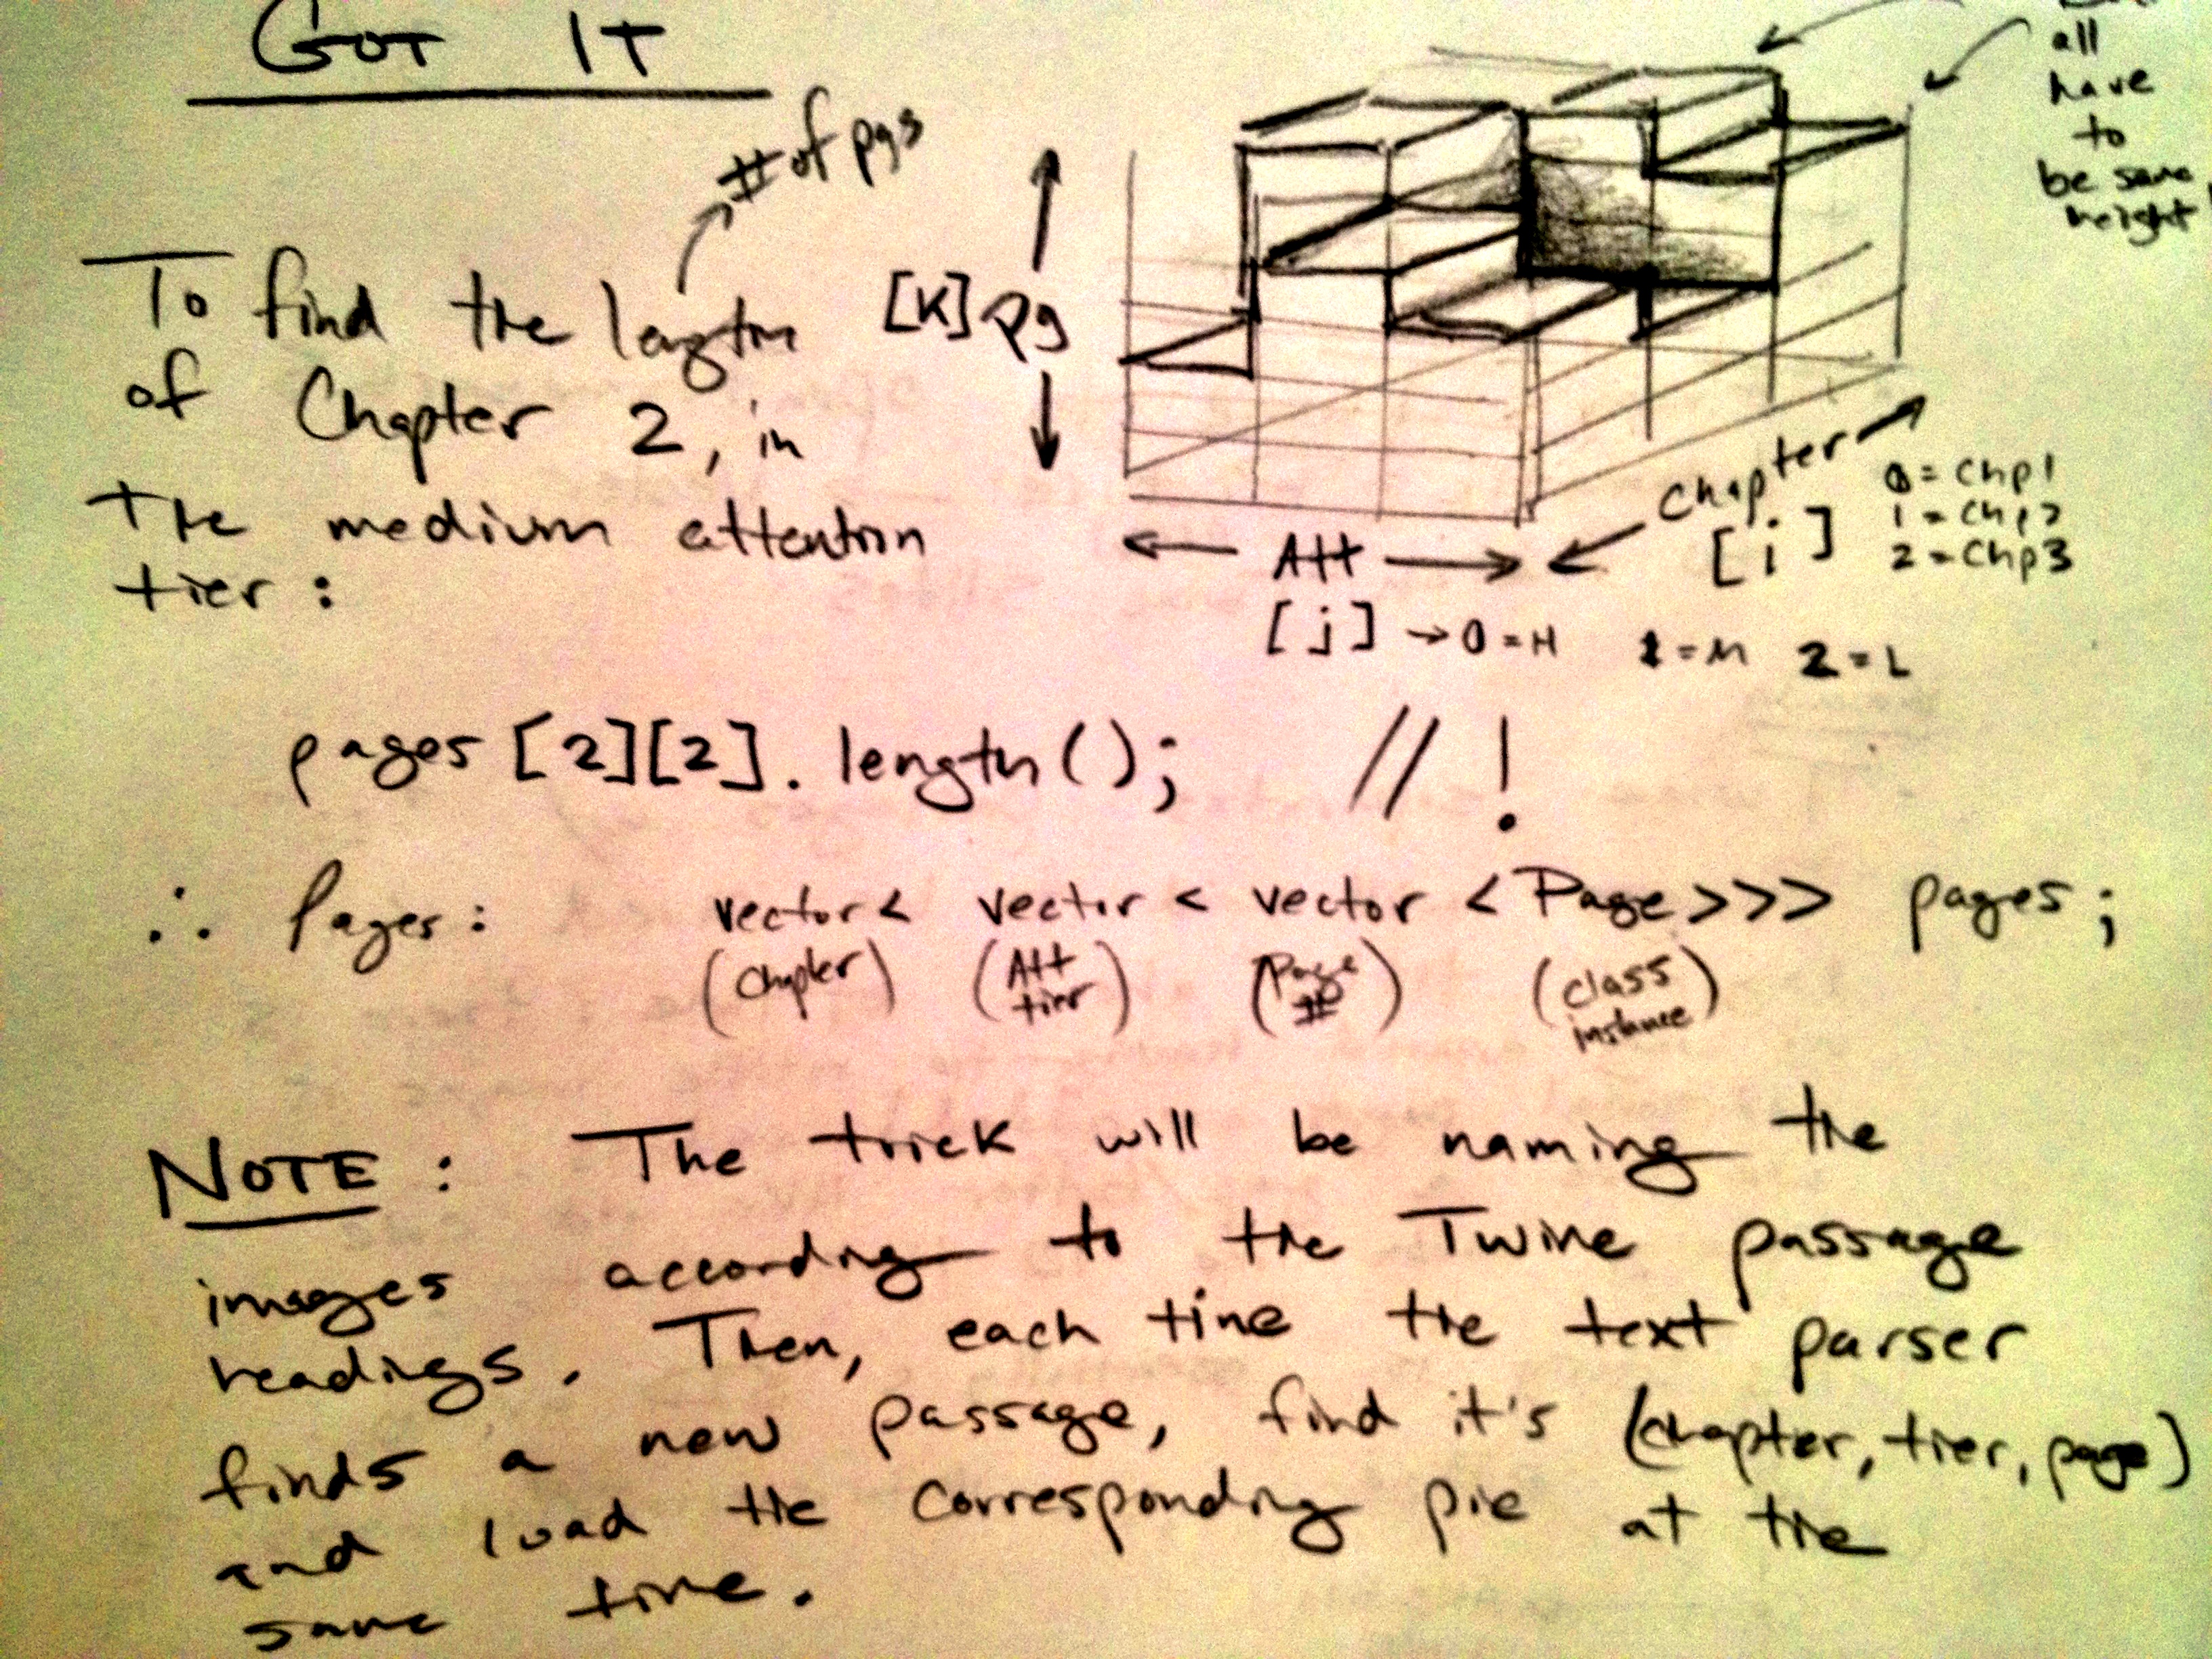 GOT IT
# of pgs
all
have
to
be same
height
To find the length
of Chapter 2, in
the medium attention
tier:
[K] pg
Chapter
[i]
0 = Chp1
1 = Chp2
2 = Chp3
Att
[j] → 0 = H 1 = M 2 = L
pages [2][2]. length(); // !
∴ Pages: vector < vector < vector < Page>>> pages;
(Chapter) (Att tier) (Page #) (class instance)
NOTE: The trick will be naming the
images according to the Twine passage
readings. Then, each time the text parser
finds a new passage, find it's (chapter, tier, page)
and load the corresponding pic at the
same time.